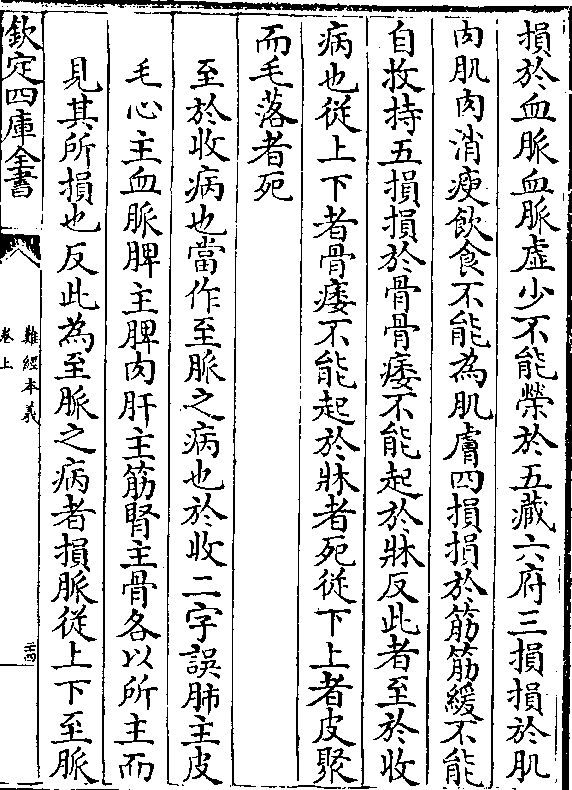 損於血脈血脈虛少不能榮於五藏六府三損損於肌
肉肌肉消瘦飲食不能為肌膚四損損於筋筋緩不能
自收持五損損於骨骨痿不能起於牀反此者至於收
病也從上下者骨痿不能起於牀者死從下上者皮聚
而毛落者死
至於收病也當作至脈之病也於收二字誤肺主皮
毛心主血脈脾主脾肉肝主筋腎主骨各以所主而
見其所損也反此為至脈之病者損脈從上下至脈
欽定四庫全書
難經本義
卷上
二十四